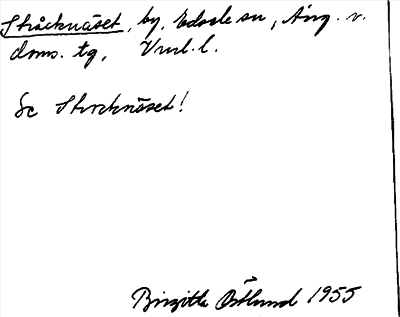 Stråcknäset, by, Edsele sn, Ång. v.
doms. tg, Vnrl. l.
Se Stocknäset!
Birgitta Östlund 1955